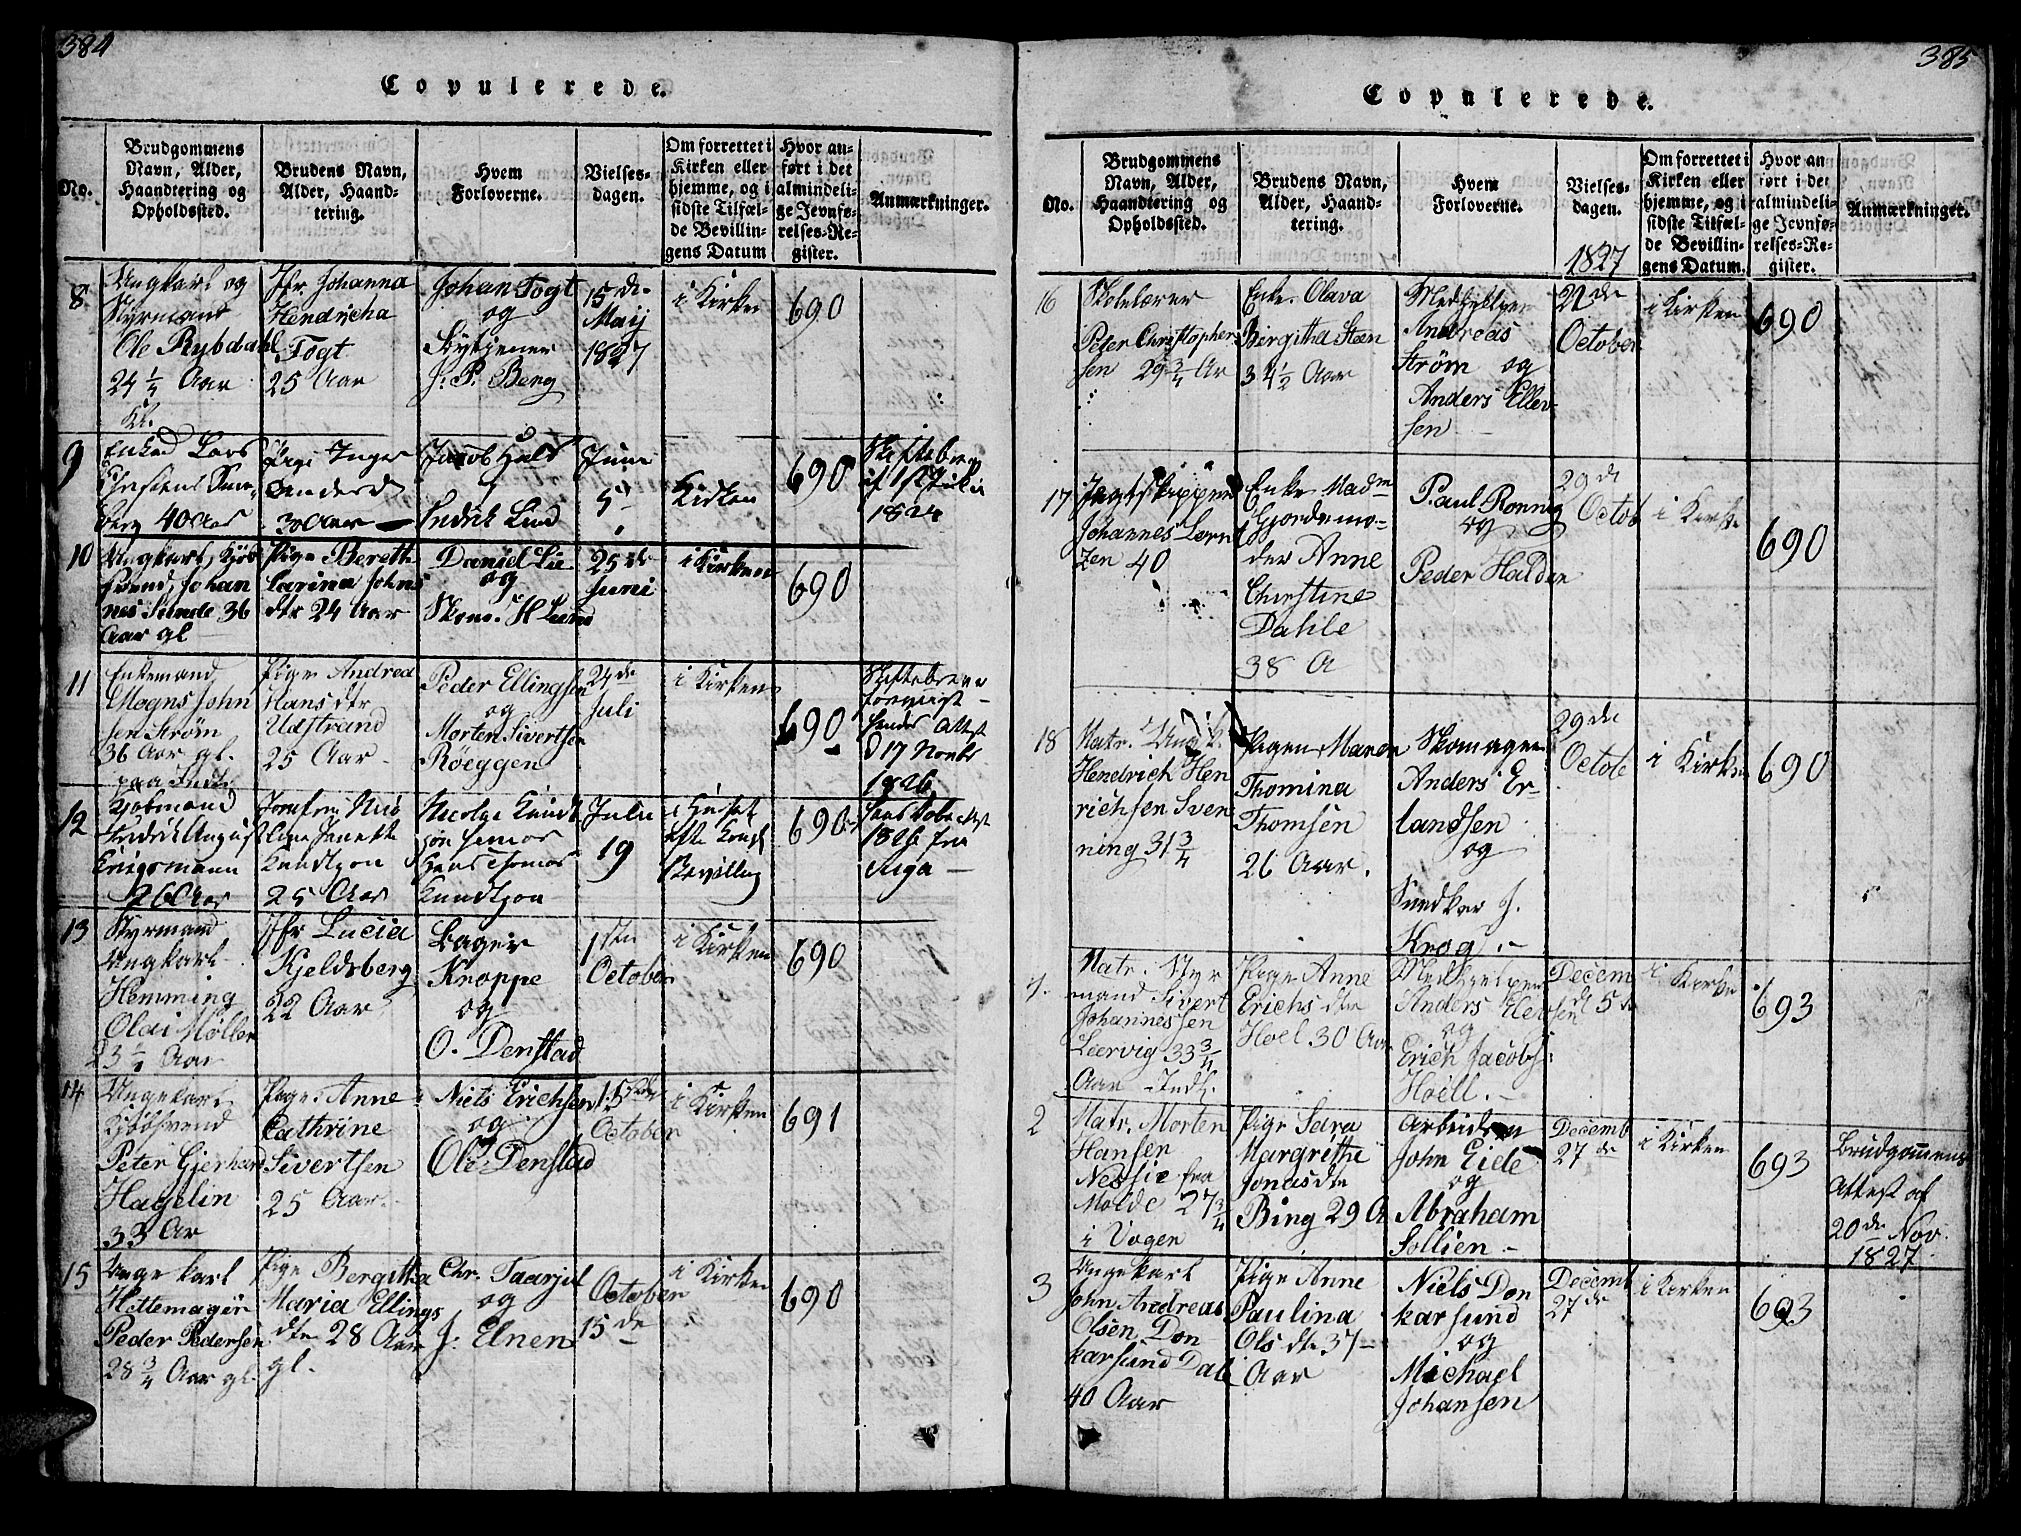 384
Copulerede.
No.
Brudgommens
Navn, Alder,
Haandtering og
Opholdssted.
Brudens Navn,
Alder, Haand-
tering.
Hvem
Forloverne.
Vielses-
dagen.
Om forrettet i
Kirken eller
hjemme, og i
sidste Tilfæl-
de Bevillin-
gens Datum
Hvor an-
ført i det
almindeli-
ge Jevnfø-
relses-Re-
gister.
Anmærkninger.
8
Ungkarl og
Styrmand
Ole Rybdahl
24 1/4 Aar
Jfr. Johanna
Hendricha
Fogt
25 Aar
Johan Fogt
og
J. P. Berg
15 de
Maij
1827
i Kirken
690
9
Enkem Lars
40 Aar
Pige Inger
30 Aar
Jacob Huld
Endrik Lund
Juni
5
Kirken
690
1824
10
Ungkarl, Kjøb
svend, Johan
nes Sunde 36
Aar gl
Pige Bereth
Larina Johns
dtr 24 Aar
Daniel Lie
og
H Lund
25 de
Juni
i Kirken
690
11
Enkemand
Mogns John
sen Strøm
36 Aar gl.
Pige Andrea
Hans dtr
Udstrand
25 Aar
Peder Ellingsen
og
Morten Sivertsen
Røeggen
24 de
Juli
i Kirken
690
Skiftebrev
Attest
D 17 Novbr
1826
12
Kjøbmand
Fredrik August
Krigsmann
26 Aar
Jomfru
Knudtzon
25 Aar
Nicolai Knudt
zon
Hans Thomas
Knudtzon
Julii
19
i Huset
efter Kongl
Bevilling
690
1826 fra
Riga
13
Styrmand
Ungkarl
Hemming
Olai Møller
23 1/2 Aar
Jfr Lucia
Kjeldsberg
22 Aar
Bager
Knoppe
og
O. Denstad
1sten
October
i Kirken
690
14
Ungekarl
Kjøbsvend
Peter Gjerhard
Hagelin
33 Ar
Pige. Anne
Cathrine
Sivertsen
25 Aar.
Niels Erichsen
og
Ole Denstad
15 de
October
i Kirken
691
15
Unge karl
Hattemager
Peder Pedersen
28 3/4 Aar gl.
Pige Bergitha
Maria Ellings
dtr 28 Aar
gl.
Chr. Taarjet
og
J. Elnen
October
15 de
i Kirken
690
385
Copulerede.
No.
Brudgommens
Navn, Alder,
Haandtering og
Opholdssted.
Brudens Navn,
Alder, Haand-
tering.
Hvem
Forloverne.
Vielses-
dagen.
1827
Om forrettet i
Kirken eller
hjemme, og i
sidste Tilfæl-
de Bevillin-
gens Datum.
Hvor an
ført i det
almindeli-
ge Jevnfø-
relses-Re-
gister.
Anmærkninger.
16
Skolelærer
Peter Christopher
sen 29 3/4 Ar
Enke. Olava
Birgitha Steen
34 1/2 Aar
Medhjelper
Andreas
Strøm og
Anders Ellev
sen
22 de
October
i Kirken
690
17
Jagtskipper
Johannes Lorn
tzen 40
Enke Madm
Gjordemo-
der Anne
Christine
Dahle
38 A
Paul Ronnig
og
Peder Halden
29 de
Octob
i Kirke
690
18
Matr. Ungk.
Hendrich Hen
richsen Sven
ning 31 3/4
Pigen Maren
Thomina
Thomsen
26 Aar.
Skomager
Anders Er-
landsen
og
Snedker J.
Krog.
29 de
Octob
i Kirken
690
1.
Matr. Styr
mand Sivert
Johannessen
Leervig 33 3/4
Aar Indl.
Pige Anne
Erichs dtr
Hoel 30 Aar
Medhjelper
Anders Ellevsen
og
Erich Jacobs:
Hoell.
Decem
d 5 te
i Kirke
693
2
Matr. Morten
Hansen
fra
Molde 27 3/4
i Vogen
Pige Sara
Margrethe
Jonasdtr
Bing 29 A
Arbeidsm
John Eide
og
Abraham
Sollien.
Decemb
27 de
i Kirken
693
Brudgommens
Attest af
20 de Nov.
1827.
3
Ungekarl
John Andreas
Olsen Don
karsund Dal
40 Aar
Pige Anne
Paulina
Ols dtr 37
Aar
Niels Don
karsund
og
Michael
Johansen
Decemb
27 de
i Kirken
693